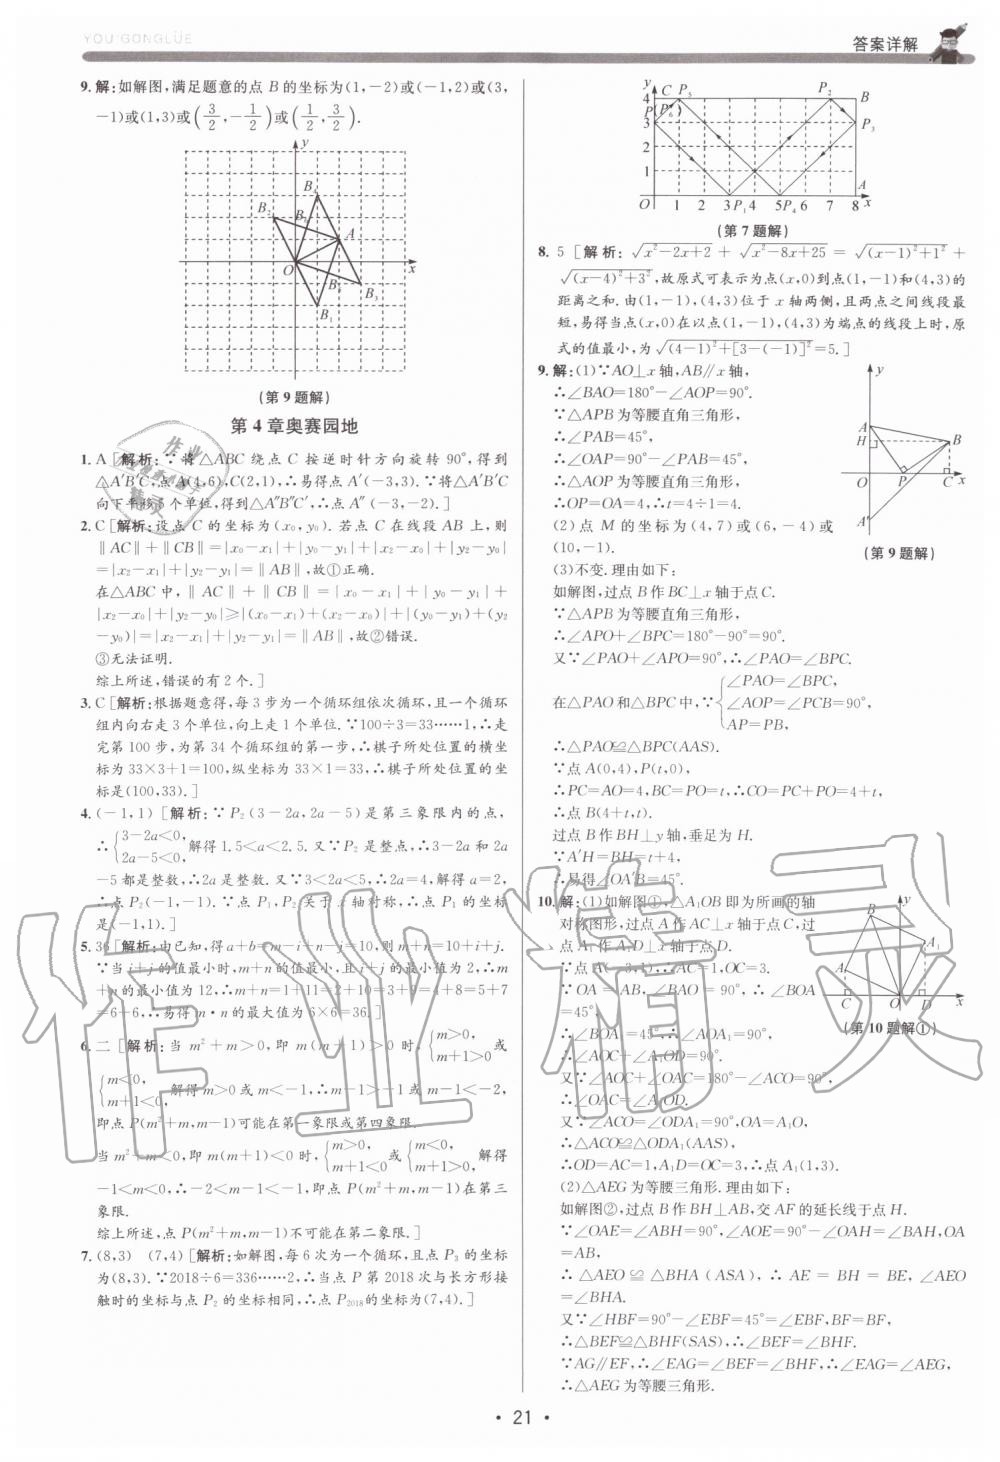 YOU GONGLÜE
答案详解
9. 解:如解图,满足题意的点 B 的坐标为(1,-2)或(-1,2)或(3,
-1)或(1,3)或(3/2,-1/2)或(1/2,3/2).
(第 9 题解)
第 4 章奥赛园地
1. A [解析:∵将△ABC 绕点 C 按逆时针方向旋转 90°,得到
△A′B′C,点 A(4,6),C(2,1),∴易得点 A′(-3,3).∵将△A′B′C
向下平移5个单位,得到△A″B″C′,∴点 A″(-3,-2).]
2. C [解析:设点 C 的坐标为(x₀,y₀). 若点 C 在线段 AB 上,则
‖AC‖+‖CB‖=|x₀-x₁|+|y₀-y₁|+|x₂-x₀|+|y₂-y₀|
=|x₂-x₁|+|y₂-y₁|=‖AB‖,故①正确.
在△ABC 中,‖AC‖+‖CB‖=|x₀-x₁|+|y₀-y₁|+
|x₂-x₀|+|y₂-y₀|≥|(x₀-x₁)+(x₂-x₀)|+|(y₀-y₁)+(y₂
-y₀)|=|x₂-x₁|+|y₂-y₁|=‖AB‖,故②错误.
③无法证明.
综上所述,错误的有 2 个.]
3. C [解析:根据题意得,每 3 步为一个循环组依次循环,且一个循环
组内向右走 3 个单位,向上走 1 个单位.∵100÷3=33……1,∴走
完第 100 步,为第 34 个循环组的第一步,∴棋子所处位置的横坐
标为 33×3+1=100,纵坐标为 33×1=33,∴棋子所处位置的坐
标是(100,33).]
4. (-1,1) [解析:∵P₂(3-2a,2a-5)是第三象限内的点,
∴{3-2a<0, 2a-5<0,解得 1.5<a<2.5. 又∵P₂ 是整点,∴3-2a 和 2a
-5 都是整数,∴2a 是整数. 又∵3<2a<5,∴2a=4,解得 a=2,
∴点 P₂(-1,-1).∵点 P₁,P₂ 关于 x 轴对称,∴点 P₁ 的坐标
是(-1,1).]
5. 36 [解析:由已知,得 a+b=m-i+n-j=10,则 m+n=10+i+j.
∵当 i+j 的值最小时,m+n的值最小,且 i+j 的最小值为 2,∴m
+n的最小值为 12,∴m+n=1+11=2+10=3+9=4+8=5+7
=6+6,∴易得 m·n 的最大值为 6×6=36.]
6. 二 [解析:当 m²+m>0,即 m(m+1)>0 时,{m>0, m+1>0或
{m<0, m+1<0,解得 m>0 或 m<-1,∴m-1>-1 或 m-1<-2,
即点 P(m²+m,m-1)可能在第一象限或第四象限.
当 m²+m<0,即 m(m+1)<0 时,{m>0, m+1<0或{m<0, m+1>0,解得
-1<m<0,∴-2<m-1<-1,即点 P(m²+m,m-1)在第三
象限.
综上所述,点 P(m²+m,m-1)不可能在第二象限.]
7. (8,3) (7,4) [解析:如解图,每 6 次为一个循环,且点 P₃ 的坐标
为(8,3).∵2018÷6=336……2,∴当点 P 第 2018 次与长方形接
触时的坐标与点 P₂ 的坐标相同,∴点 P₂₀₁₈的坐标为(7,4).]
(第 7 题解)
8. 5 [解析:√(x²-2x+2)+√(x²-8x+25)=√((x-1)²+1²)+
√((x-4)²+3²),故原式可表示为点(x,0)到点(1,-1)和(4,3)的
距离之和. 由(1,-1),(4,3)位于 x 轴两侧,且两点之间线段最
短,易得当点(x,0)在以点(1,-1),(4,3)为端点的线段上时,原
式的值最小,为√((4-1)²+[3-(-1)]²)=5.]
9. 解:(1)∵AO⊥x 轴,AB∥x 轴,
∴∠BAO=180°-∠AOP=90°.
∵△APB 为等腰直角三角形,
∴∠PAB=45°,
∴∠OAP=90°-∠PAB=45°,
∴△AOP 为等腰直角三角形,
∴OP=OA=4,∴t=4÷1=4.
(2)点 M 的坐标为(4,7)或(6,-4)或
(10,-1).
(第 9 题解)
(3)不变. 理由如下:
如解图,过点 B 作 BC⊥x 轴于点 C.
∵△APB 为等腰直角三角形,
∴∠APO+∠BPC=180°-90°=90°.
又∵∠PAO+∠APO=90°,∴∠PAO=∠BPC.
在△PAO 和△BPC 中,∵{∠PAO=∠BPC, ∠AOP=∠PCB=90°, AP=PB,
∴△PAO≌△BPC(AAS).
∵点 A(0,4),P(t,0),
∴PC=AO=4,BC=PO=t,∴CO=PC+PO=4+t,
∴点 B(4+t,t).
过点 B 作 BH⊥y 轴,垂足为 H.
∵A′H=BH=t+4,
∴易得∠OA′B=45°.
10. 解:(1)如解图①,△A₁OB 即为所画的轴
对称图形,过点 A 作 AC⊥x 轴于点 C,过
点 A₁ 作 A₁D⊥x 轴于点 D.
∵点 A(-3,1),∴AC=1,OC=3.
∵OA=AB,∠BAO=90°,∴∠BOA
=45°,
∴∠BOA₁=45°,∴∠AOA₁=90°,
(第 10 题解①)
∴∠AOC+∠A₁OD=90°.
又∵∠AOC+∠OAC=180°-∠ACO=90°,
∴∠OAC=∠A₁OD.
又∵∠ACO=∠ODA₁=90°,OA=A₁O,
∴△ACO≌△ODA₁(AAS),
∴OD=AC=1,A₁D=OC=3,∴点 A₁(1,3).
(2)△AEG 为等腰三角形. 理由如下:
如解图②,过点 B 作 BH⊥AB,交 AF 的延长线于点 H.
∵∠OAE=∠ABH=90°,∠AOE=90°-∠OAH=∠BAH,OA
=AB,
∴△AEO≌△BHA(ASA),∴AE=BH=BE,∠AEO
=∠BHA.
又∵∠HBF=90°-∠EBF=45°=∠EBF,BF=BF,
∴△BEF≌△BHF(SAS),∴∠BEF=∠BHF.
∵AG∥EF,∴∠EAG=∠BEF=∠BHF,∴∠EAG=∠AEG,
∴△AEG 为等腰三角形.
• 21 •
作业精灵